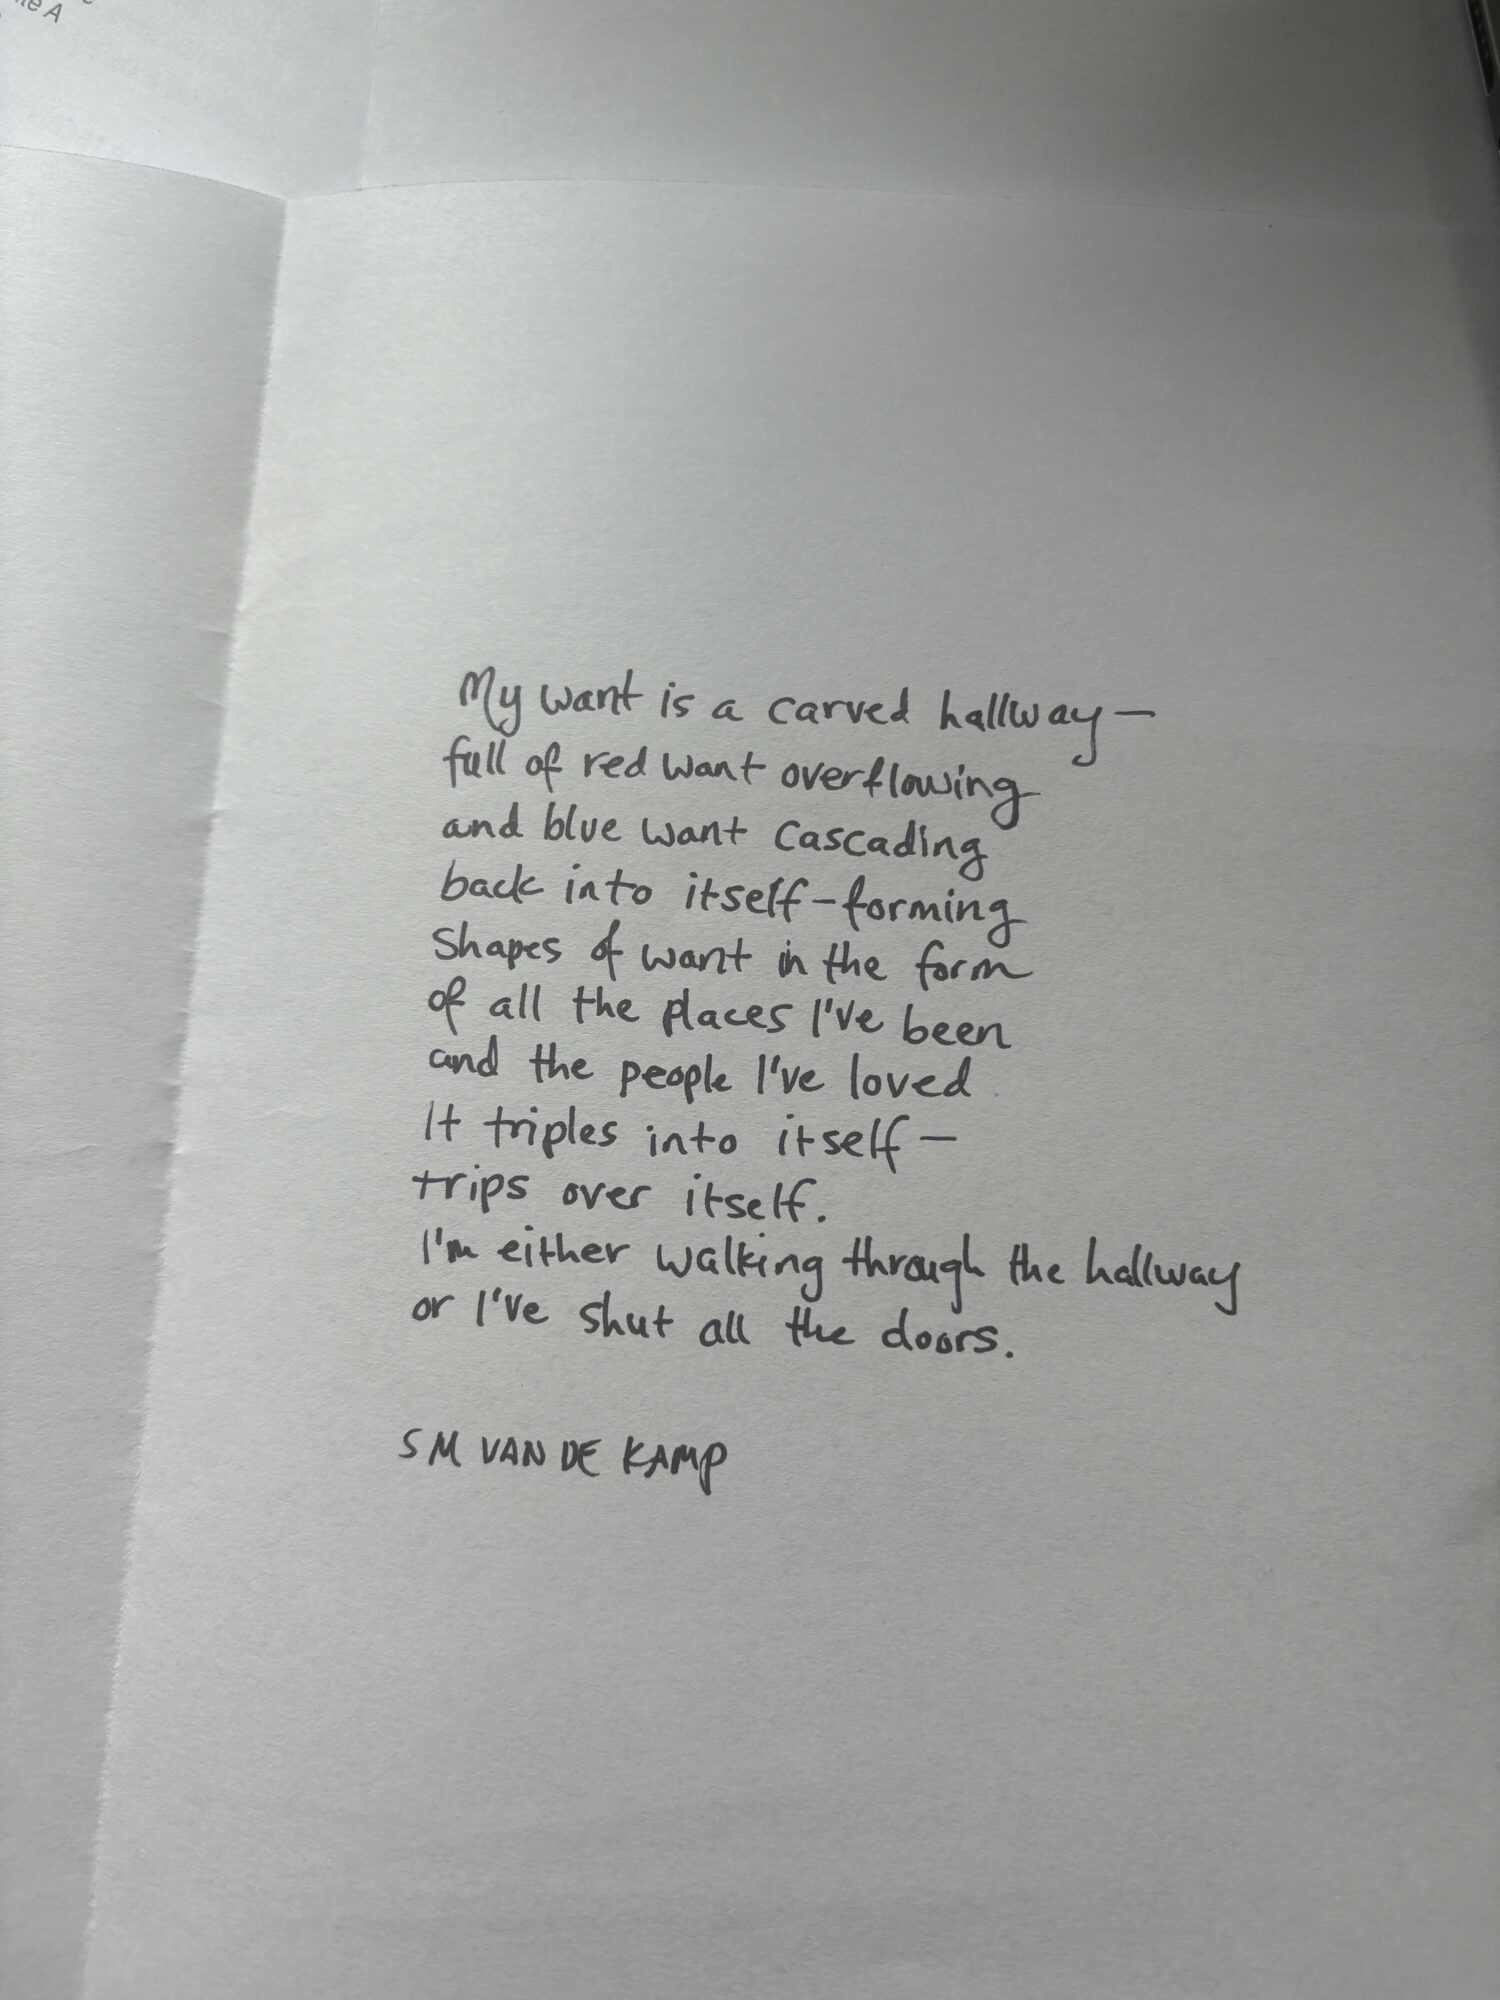 My want is a carved hallway—
full of red want overflowing
and blue want cascading
back into itself-forming
shapes of want in the form
of all the places I've been
and the people I've loved
It triples into itself—
trips over itself.
I'm either walking through the hallway
or I've shut all the doors.
SM VAN DE KAMP